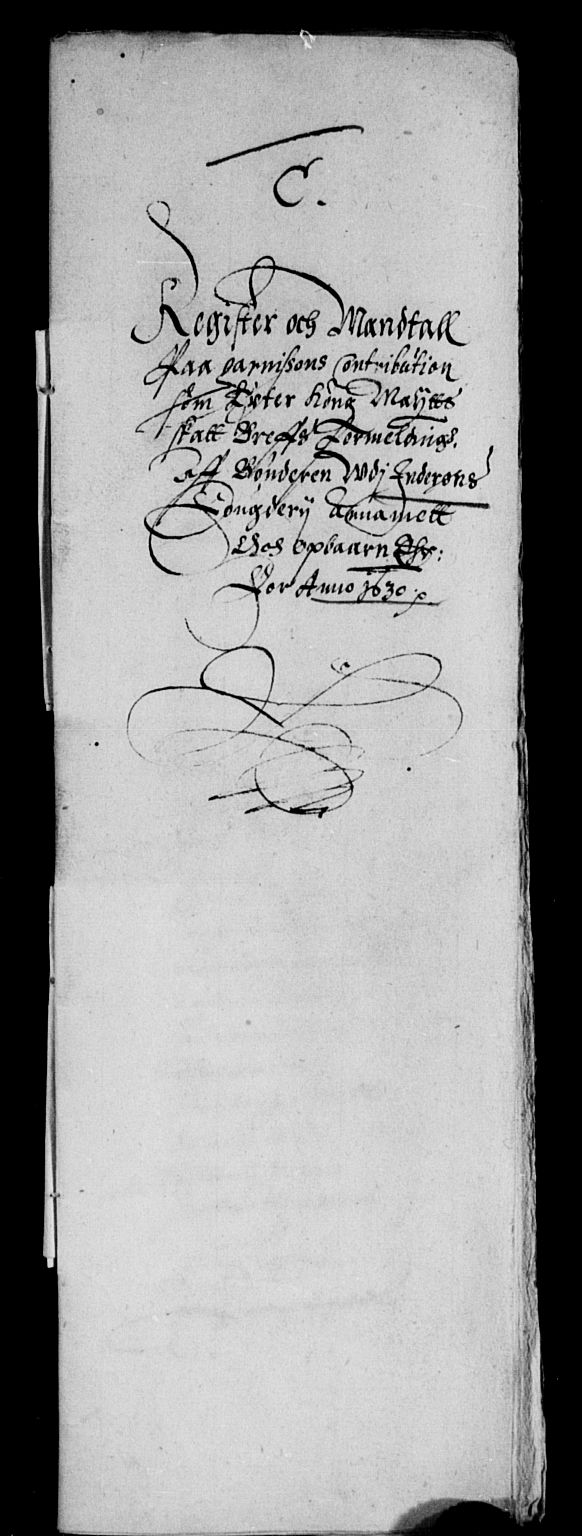 C.
Register och Mandtall
Paa garnisons Contribution
som Epter Kong Maytts
skatt Breffs Formeldnings.
Aff Bønderen Udj Inderøns
Fougderij Annamett
Och Opbaarn
For Anno 1630